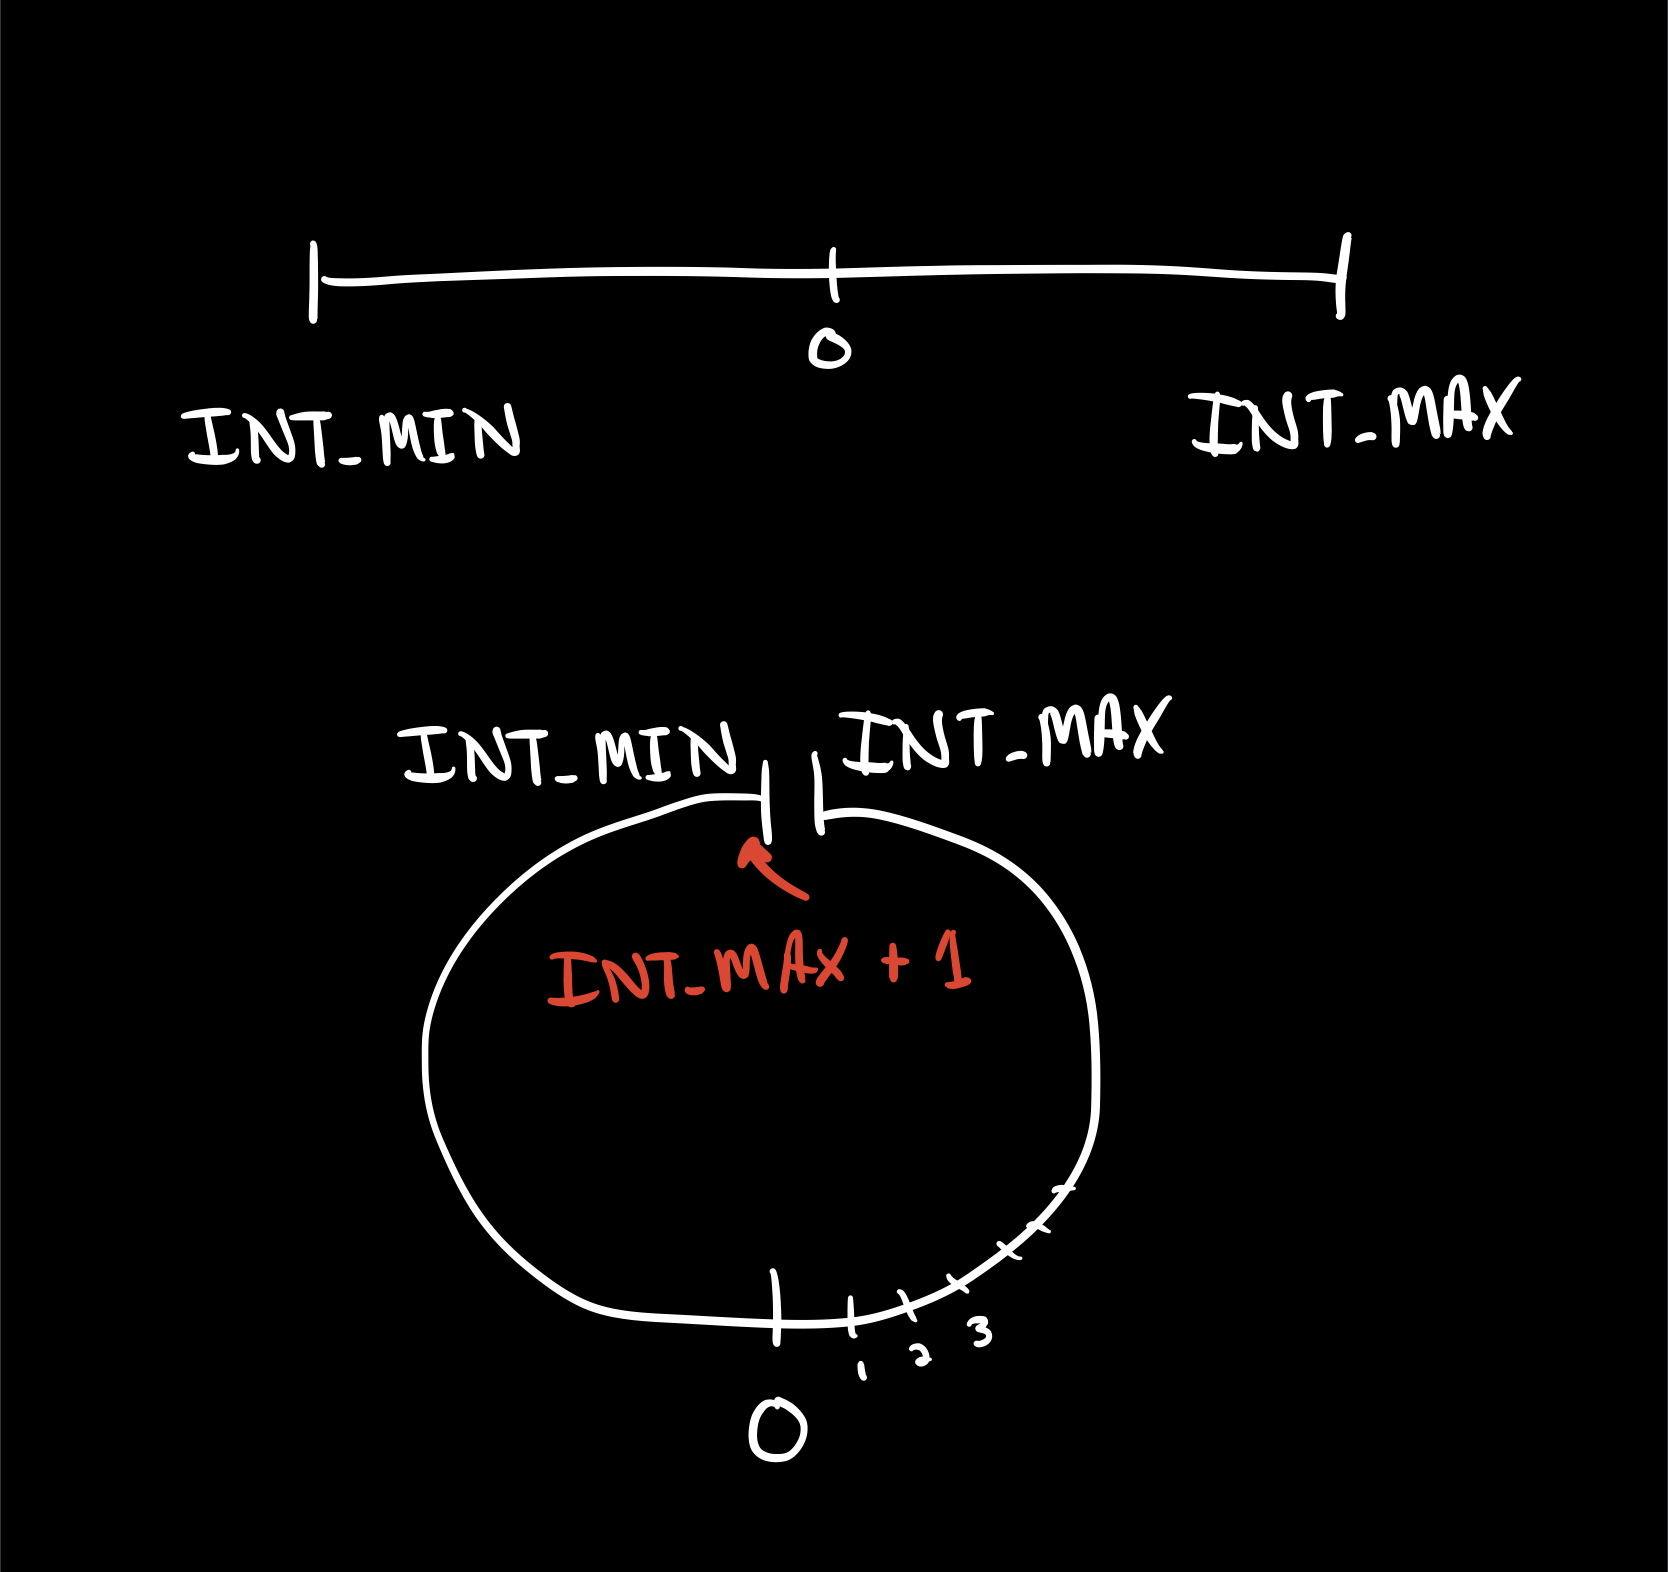 0
INT_MIN
INT_MAX
INT_MIN
INT_MAX
INT_MAX + 1
1
2
3
0